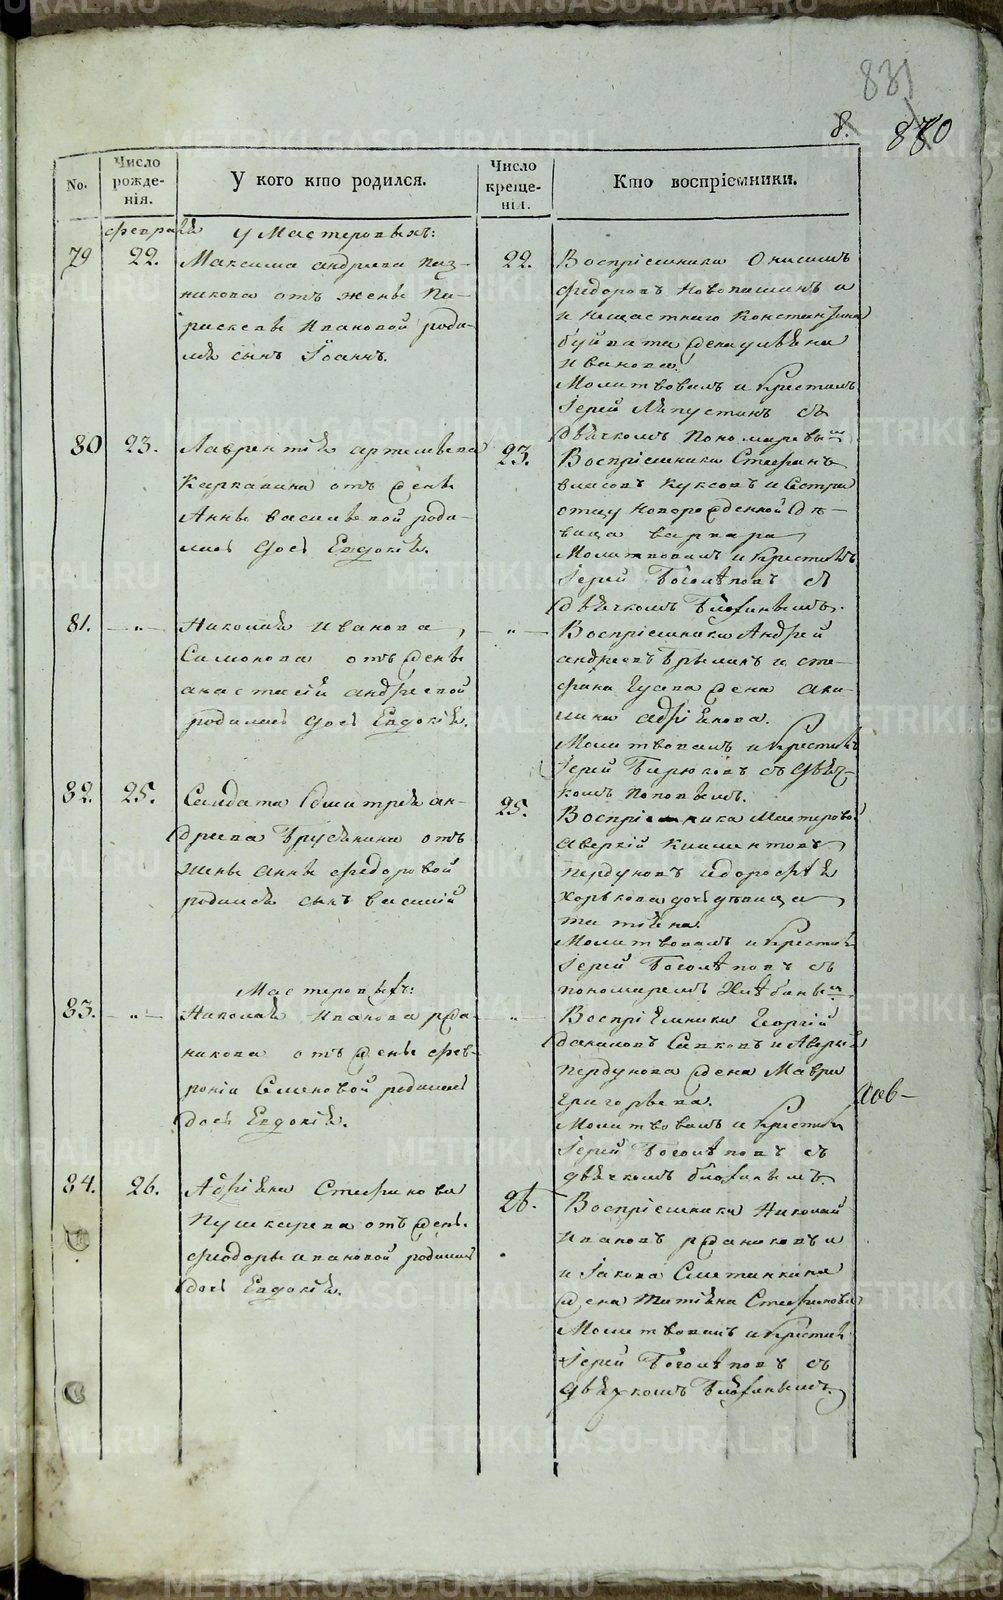 831
8.
880
No.
Число рожде- нія.
У кого кто родился.
Число креще- нія.
Кто воспріемники.
февраля
У Мастеровыхъ:
79
22.
Максима андреева
никова отъ жены Па-
раскевы Ивановой роди-
лся сынъ Іоаннъ.
22.
Воспріемники Онисимъ
федоровъ Новопашинъ и
Константина
жена
иванова.
Молитвовалъ и крестилъ
Іерей Ляпустинъ съ
дьячкомъ Пономаревымъ
80
23.
Лаврентія артемьева
Каркавина отъ жены
Анны васильевой роди-
лась дочь Евдокія.
23.
Воспріемники Стефанъ
власовъ Куксовъ и сестра
отцу новорожденной дѣ-
вица варвара
Молитвовалъ и крестилъ
Іерей Боголѣповъ съ
дьячкомъ
81.
— „ —
Николая иванова
Симонова отъ жены
анастасіи андреевой
родилась дочь Евдокія.
— „ —
Воспріемники Андрей
андреевъ и сте-
фана Гусева жена аку-
лина адріянова.
Молитвовалъ и крестилъ
Іерей Бирюковъ съ дьяч-
комъ Поповымъ.
82.
25.
Салдата Дмитрея ан-
дреева Трусянина отъ
жены анны федоровой
родился сынъ василій
25.
Воспріемники Мастеровой
аверкій Климентовъ
Пердуновъ и дорофея
хорькова дочь дѣвица
татіяна.
Молитвовалъ и крестилъ
Іерей Боголѣповъ съ
пономаремъ Хлѣбинымъ
Мастеровыхъ:
83.
— „ —
Николая Иванова ржа-
никова отъ жены фев-
роніи Семеновой родилась
дочь Евдокія.
„
Воспріемники Георгій
даниловъ Сапковъ и Аверкія
Пердунова жена Мавра
григорьева.
Молитвовалъ и крестилъ
Іерей Боголѣповъ съ
дьячкомъ
84.
26.
Адріяна Стефанова
Пушкарева отъ жены
феодоры ивановой родилась
дочь Евдокія.
26.
Воспріемники Николай
Ивановъ ржаниковъ и
и Іакова Сметанкина
жена татіяна Стефанова
Молитвовалъ и крестилъ
Іерей Боголѣповъ съ
дьячкомъ
METRIKI.GASO-URAL.RU